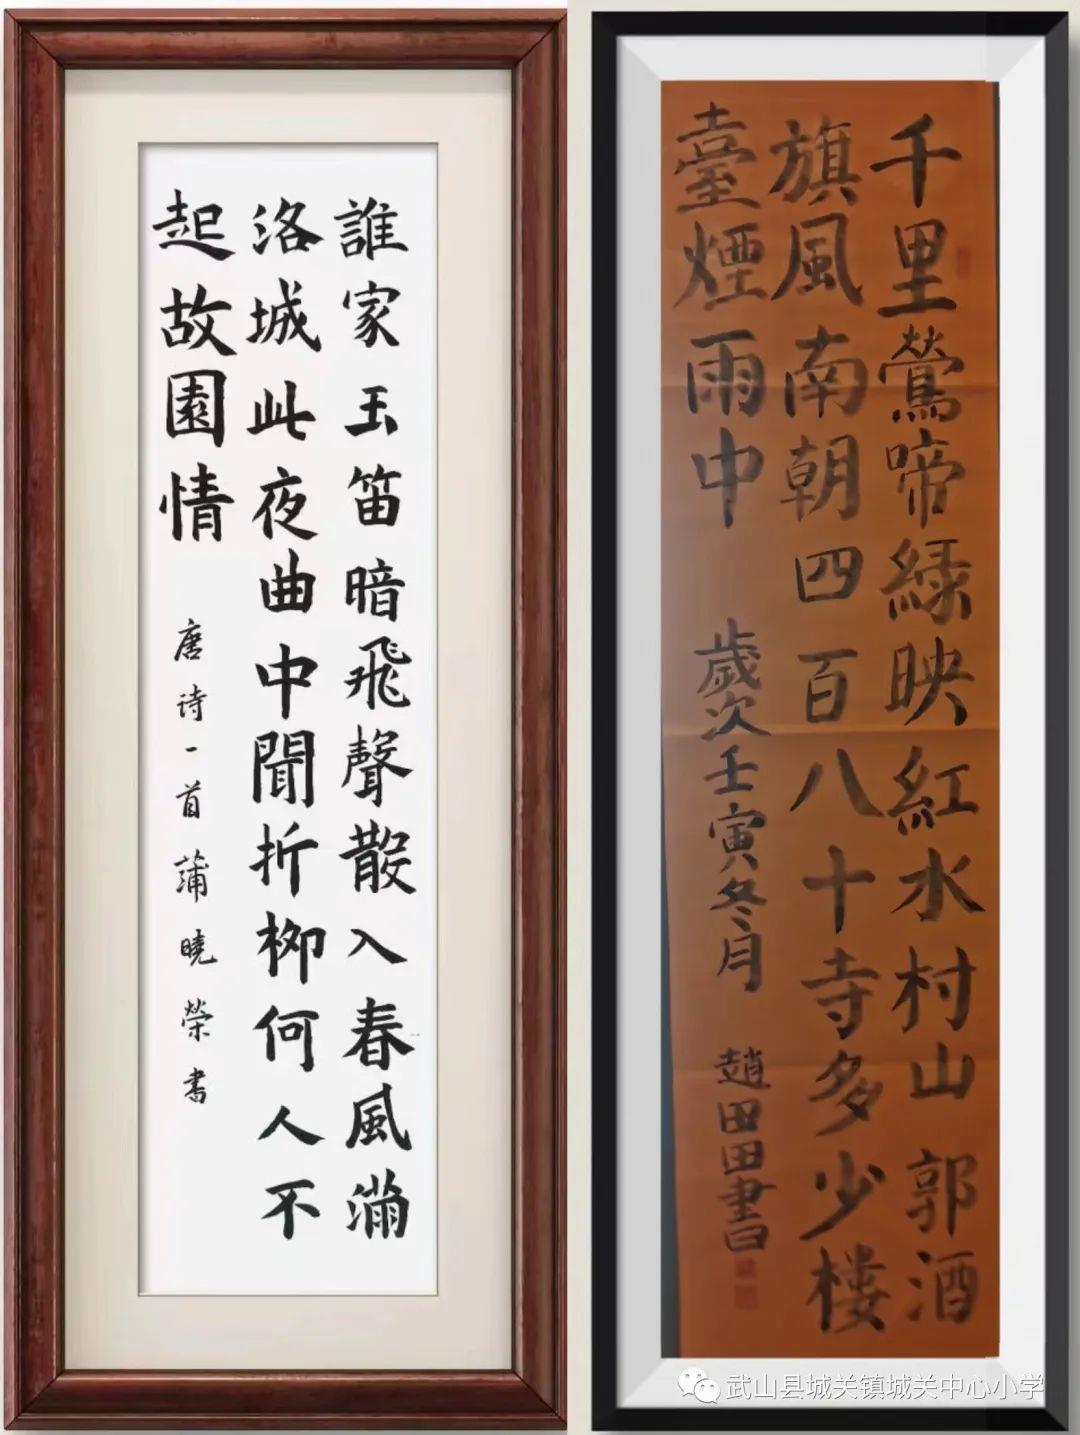 誰家玉笛暗飛聲散入春風滿
洛城此夜曲中聞折柳何人不
起故園情
唐诗一首 蒲曉榮書
千里鶯啼緑映紅水村山郭酒
旗風南朝四百八十寺多少楼
臺煙雨中
歲次壬寅冬月 趙田田書
武山县城关镇城关中心小学